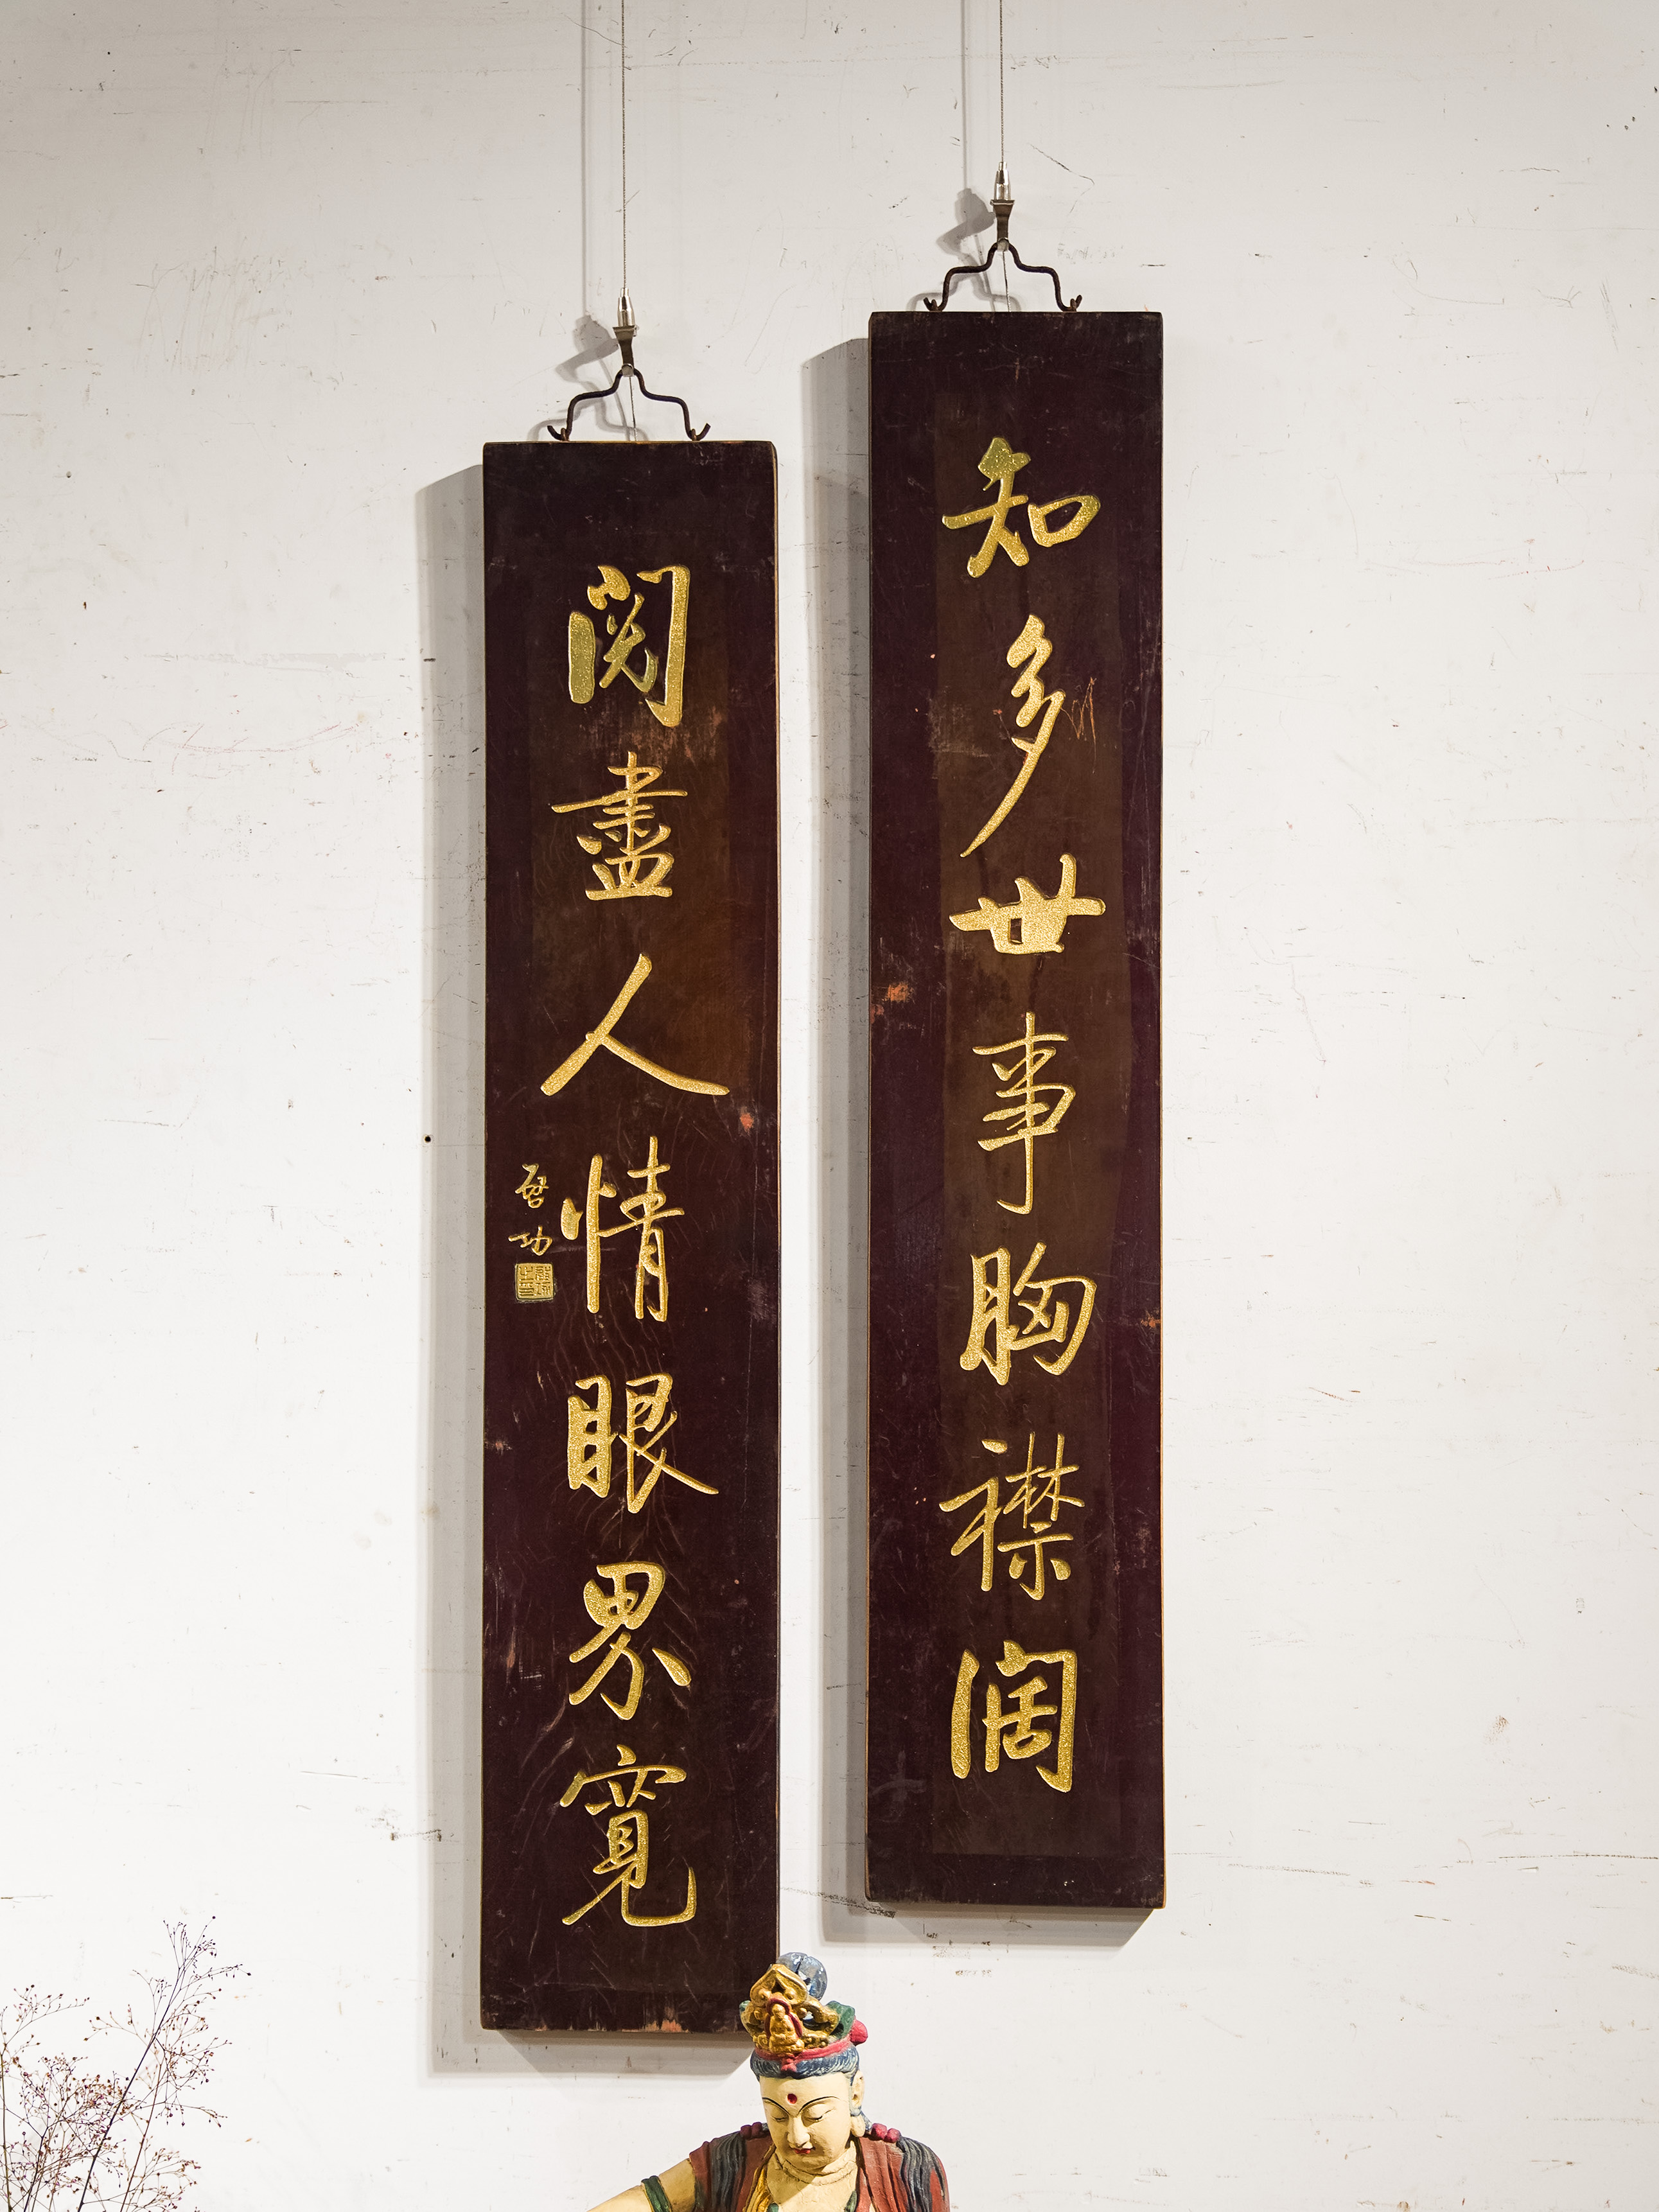 知多世事胸襟阔
阅盡人情眼界寬
启功